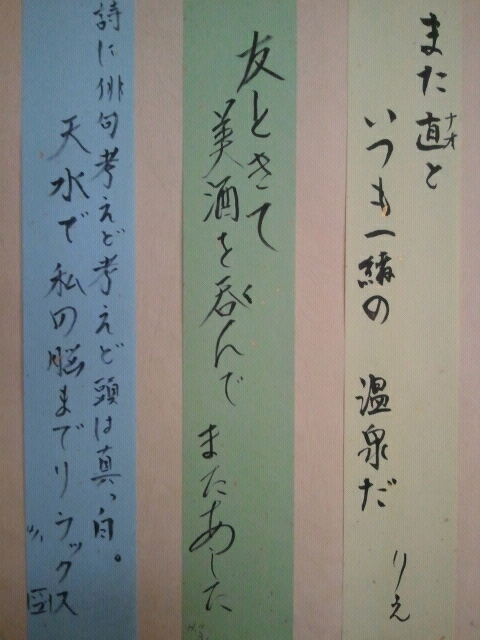 また直と
ナオ
いつも一緒の 温泉だ
りえ
友ときて
美酒を呑んで またあした
詩に俳句考えど考えど頭は真っ白。
天水で私の脳までリラックス